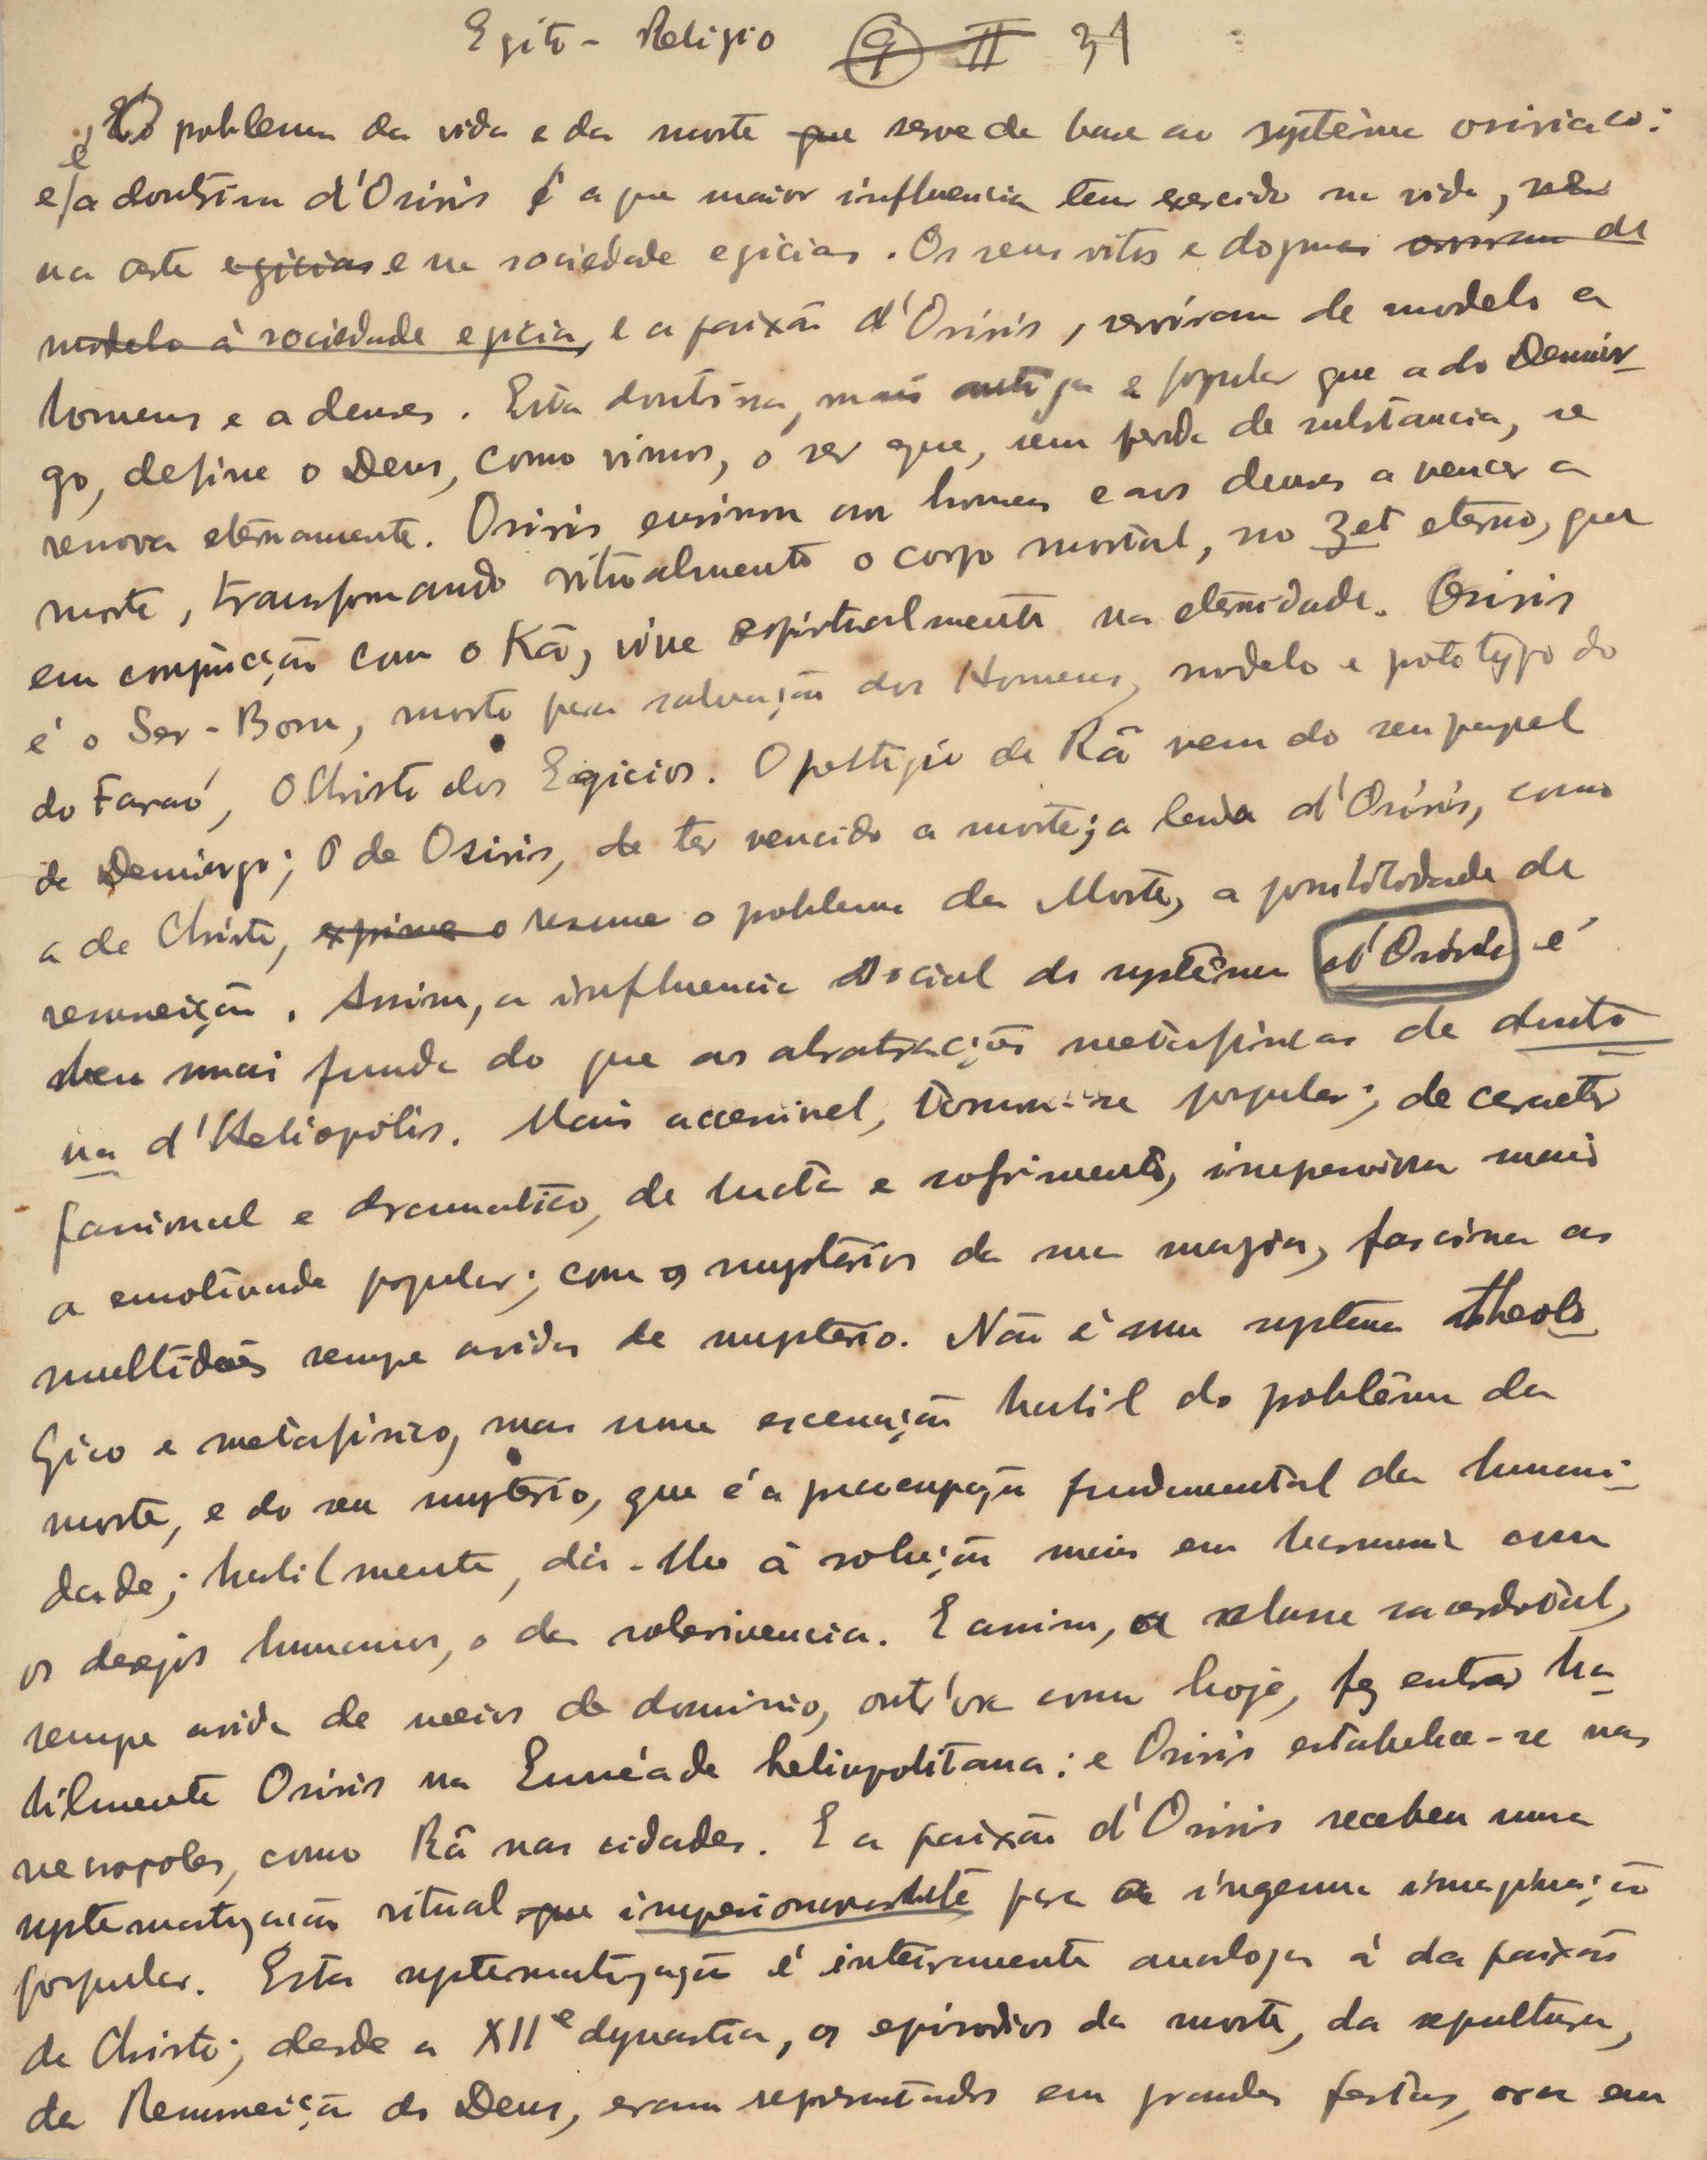 Egito - Religião 9 II 31
é o problema da vida e da morte que serve de base ao systêma osiriaco:
e/a doutrina d'Osiris é a que maior influencia tem exercido na vida,
na arte egicias e na sociedade egicias. Os seus ritos e dogmas serviram de
modelo à sociedade egicia, e a paixão d'Osiris, serviram de modelo a
homens e a deuses. Esta doutrina, mais antiga e popular que a do Demiur-
go, define o Deus, como vimos, o ser que, sem perda de substancia, se
renova eternamente. Osiris ensinou aos homens e aos deuses a vencer a
morte, transformando ritualmente o corpo mortal, no Zet eterno, que
em conjuncção com o Kâ, vive espiritualmente na eternidade. Osiris
é o Ser-Bom, morto para salvação dos Homens, modelo e prototypo do
do Faraó, O Christo dos Egicios. O prestigio de Râ vem do seu papel
de Demiurgo; O de Osiris, de ter vencido a morte; a lenda d'Osiris, como
a de Christo, exprime o resume o problema da Morte, a possibilidade de
resurreição. Assim, a influencia social do systêma d'Osiris é
bem mais funda do que as abstracções metafisicas de doutri
na d'Heliopolis. Mais accessivel, torna-se popular; de caracter
passional e dramatico, de lucta e sofrimento, impressiona mais
a emotividade popular; com os mysterios da sua magia, fascina as
multidões sempre avidas de mysterio. Não é um systema theolo
gico e metafisico, mas uma encenação habil do problêma da
morte, e do seu mysterio, que é a preocupação fundamental da humani-
dade; habilmente, dá-lhe a solução mais em harmonia com
os desejos humanos, o da sobrevivencia. E assim, a classe sacerdotal,
sempre avida de meios de dominio, outr'ora como hoje, fez entrar ha
bilmente Osiris na Ennéade heliopolitana: e Osiris estabelece-se nas
necropoles, como Râ nas cidades. E a paixão d'Osiris recebeu uma
systematização ritual que impressionante para a ingenua imaginação
popular. Esta systematização é inteiramente analoga á da paixão
de Christo; desde a XIIe dynastia, os episodios da morte, da sepultura,
da Resurreição do Deus, eram representados em grandes festas, ora em